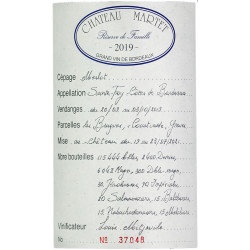 CHATEAU MARTET
Réserve de Famille
2019
GRAND VIN DE BORDEAUX
Cépage Merlot
Appellation Sainte Foy Côtes de Bordeaux
Vendanges du 20/09 au
Parcelles Les
Mise au Château du 19 au 22/07/2021
Nbre bouteilles 115444 btlles, 2400 Demies,
6062 Mags, 300 Dble Mag,
30 Jéroboams, 30 Impériales
20 Salmanazars, 15 Balthazars
15 Nabuchodonosors,
Vinificateur Louis Mitjavile
No 37048